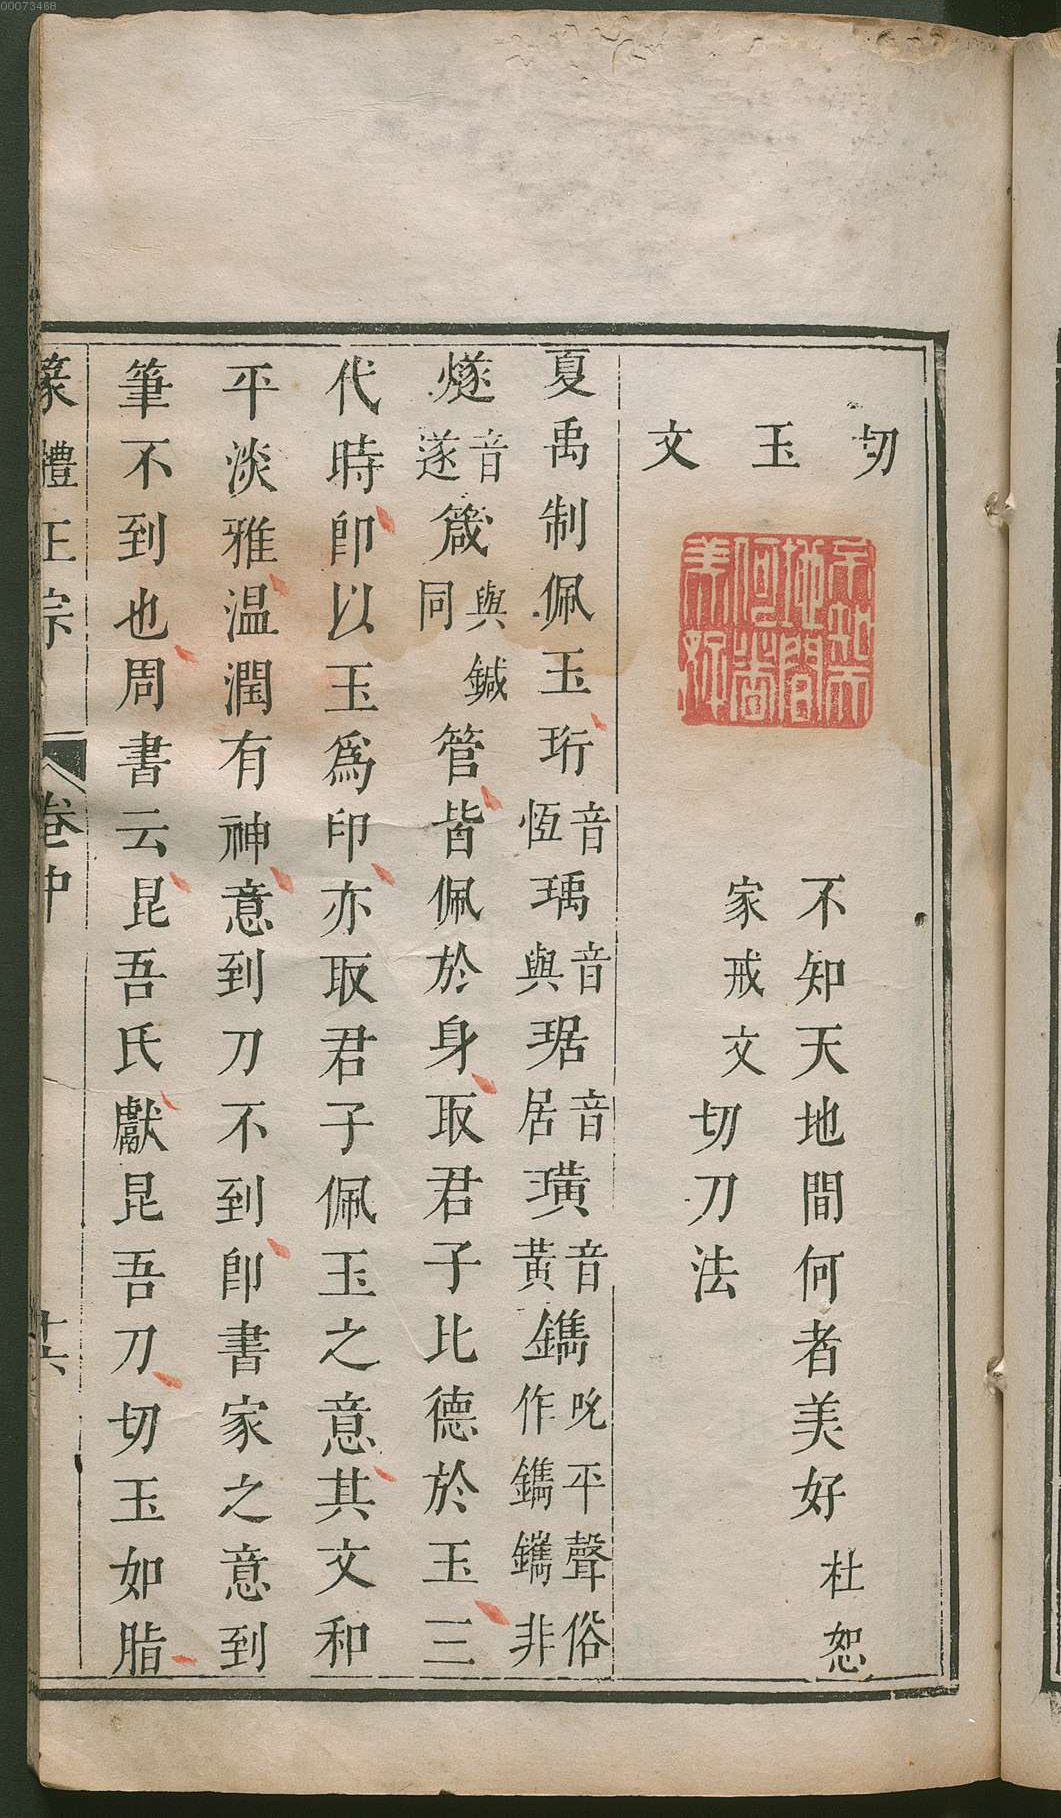 00073468
切玉文
不知天地間何者美好
不知天地間何者美好 杜恕
家戒文
切刀法
夏禹制佩玉珩音恆瑀音與琚音居璜音黃鐫吮平聲俗作鐫鑴非
燧音遂箴與鍼同管皆佩於身取君子比德於玉三
代時卽以玉爲印亦取君子佩玉之意其文和
平淡雅温潤有神意到刀不到卽書家之意到
筆不到也周書云昆吾氏獻昆吾刀切玉如脂
篆體正宗 卷中 廿六